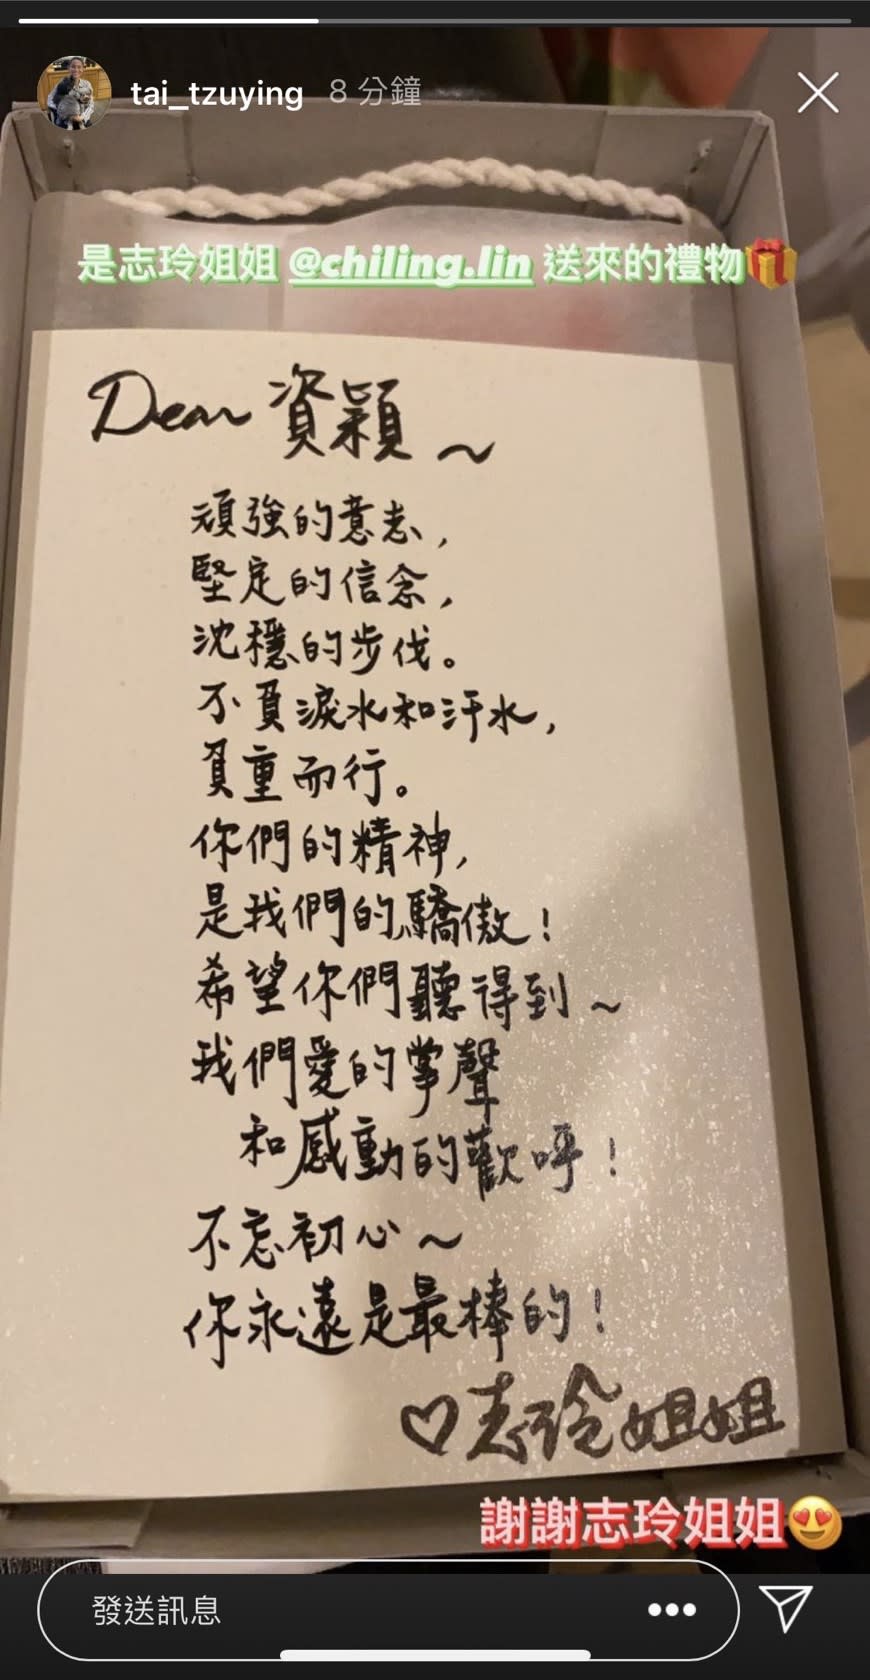 tai_tzuying 8 分鐘
是志玲姐姐 @chiling.lin 送來的禮物🎁
Dear 資穎～
頑強的意志，
堅定的信念，
沈穩的步伐。
不負淚水和汗水，
負重而行。
你們的精神，
是我們的驕傲！
希望你們聽得到～
我們愛的掌聲
和感動的歡呼！
不忘初心～
你永遠是最棒的！
♡志玲姐姐
謝謝志玲姐姐😍
發送訊息